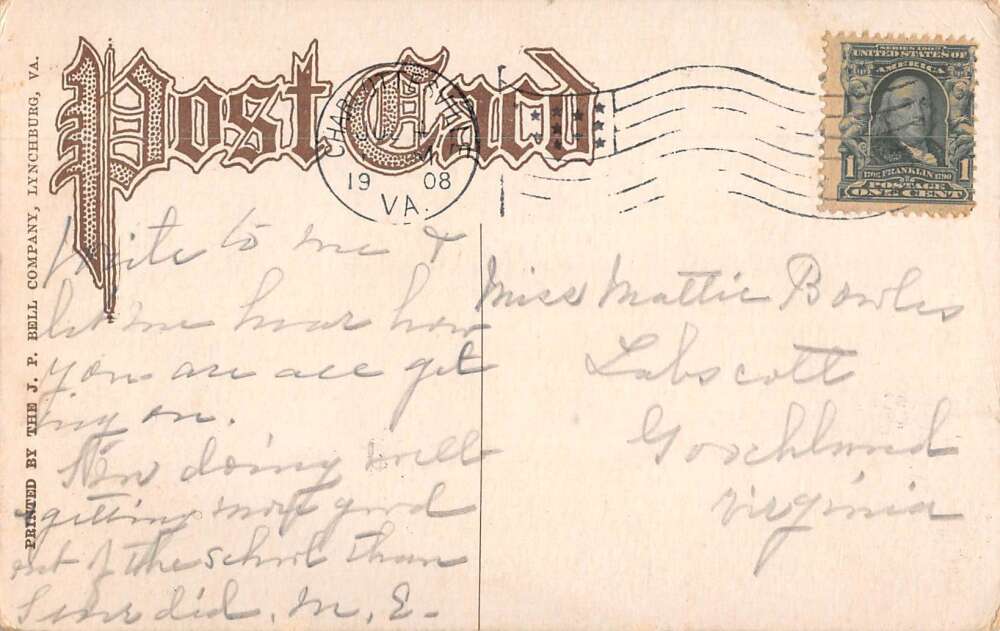 Post Card
PRINTED BY THE J. P. BELL COMPANY, LYNCHBURG, VA.
19 08
VA.
SERIES 1902
UNITED STATES OF
AMERICA
1 1
1706 FRANKLIN 1790
POSTAGE
ONE CENT
Write to me &
let me hear how
you are all get
ing on.
doing well
getting more good
out of the school than
I ever did. M. E.
Miss Mattie Bowles
Labscott
Goochland
Virginia